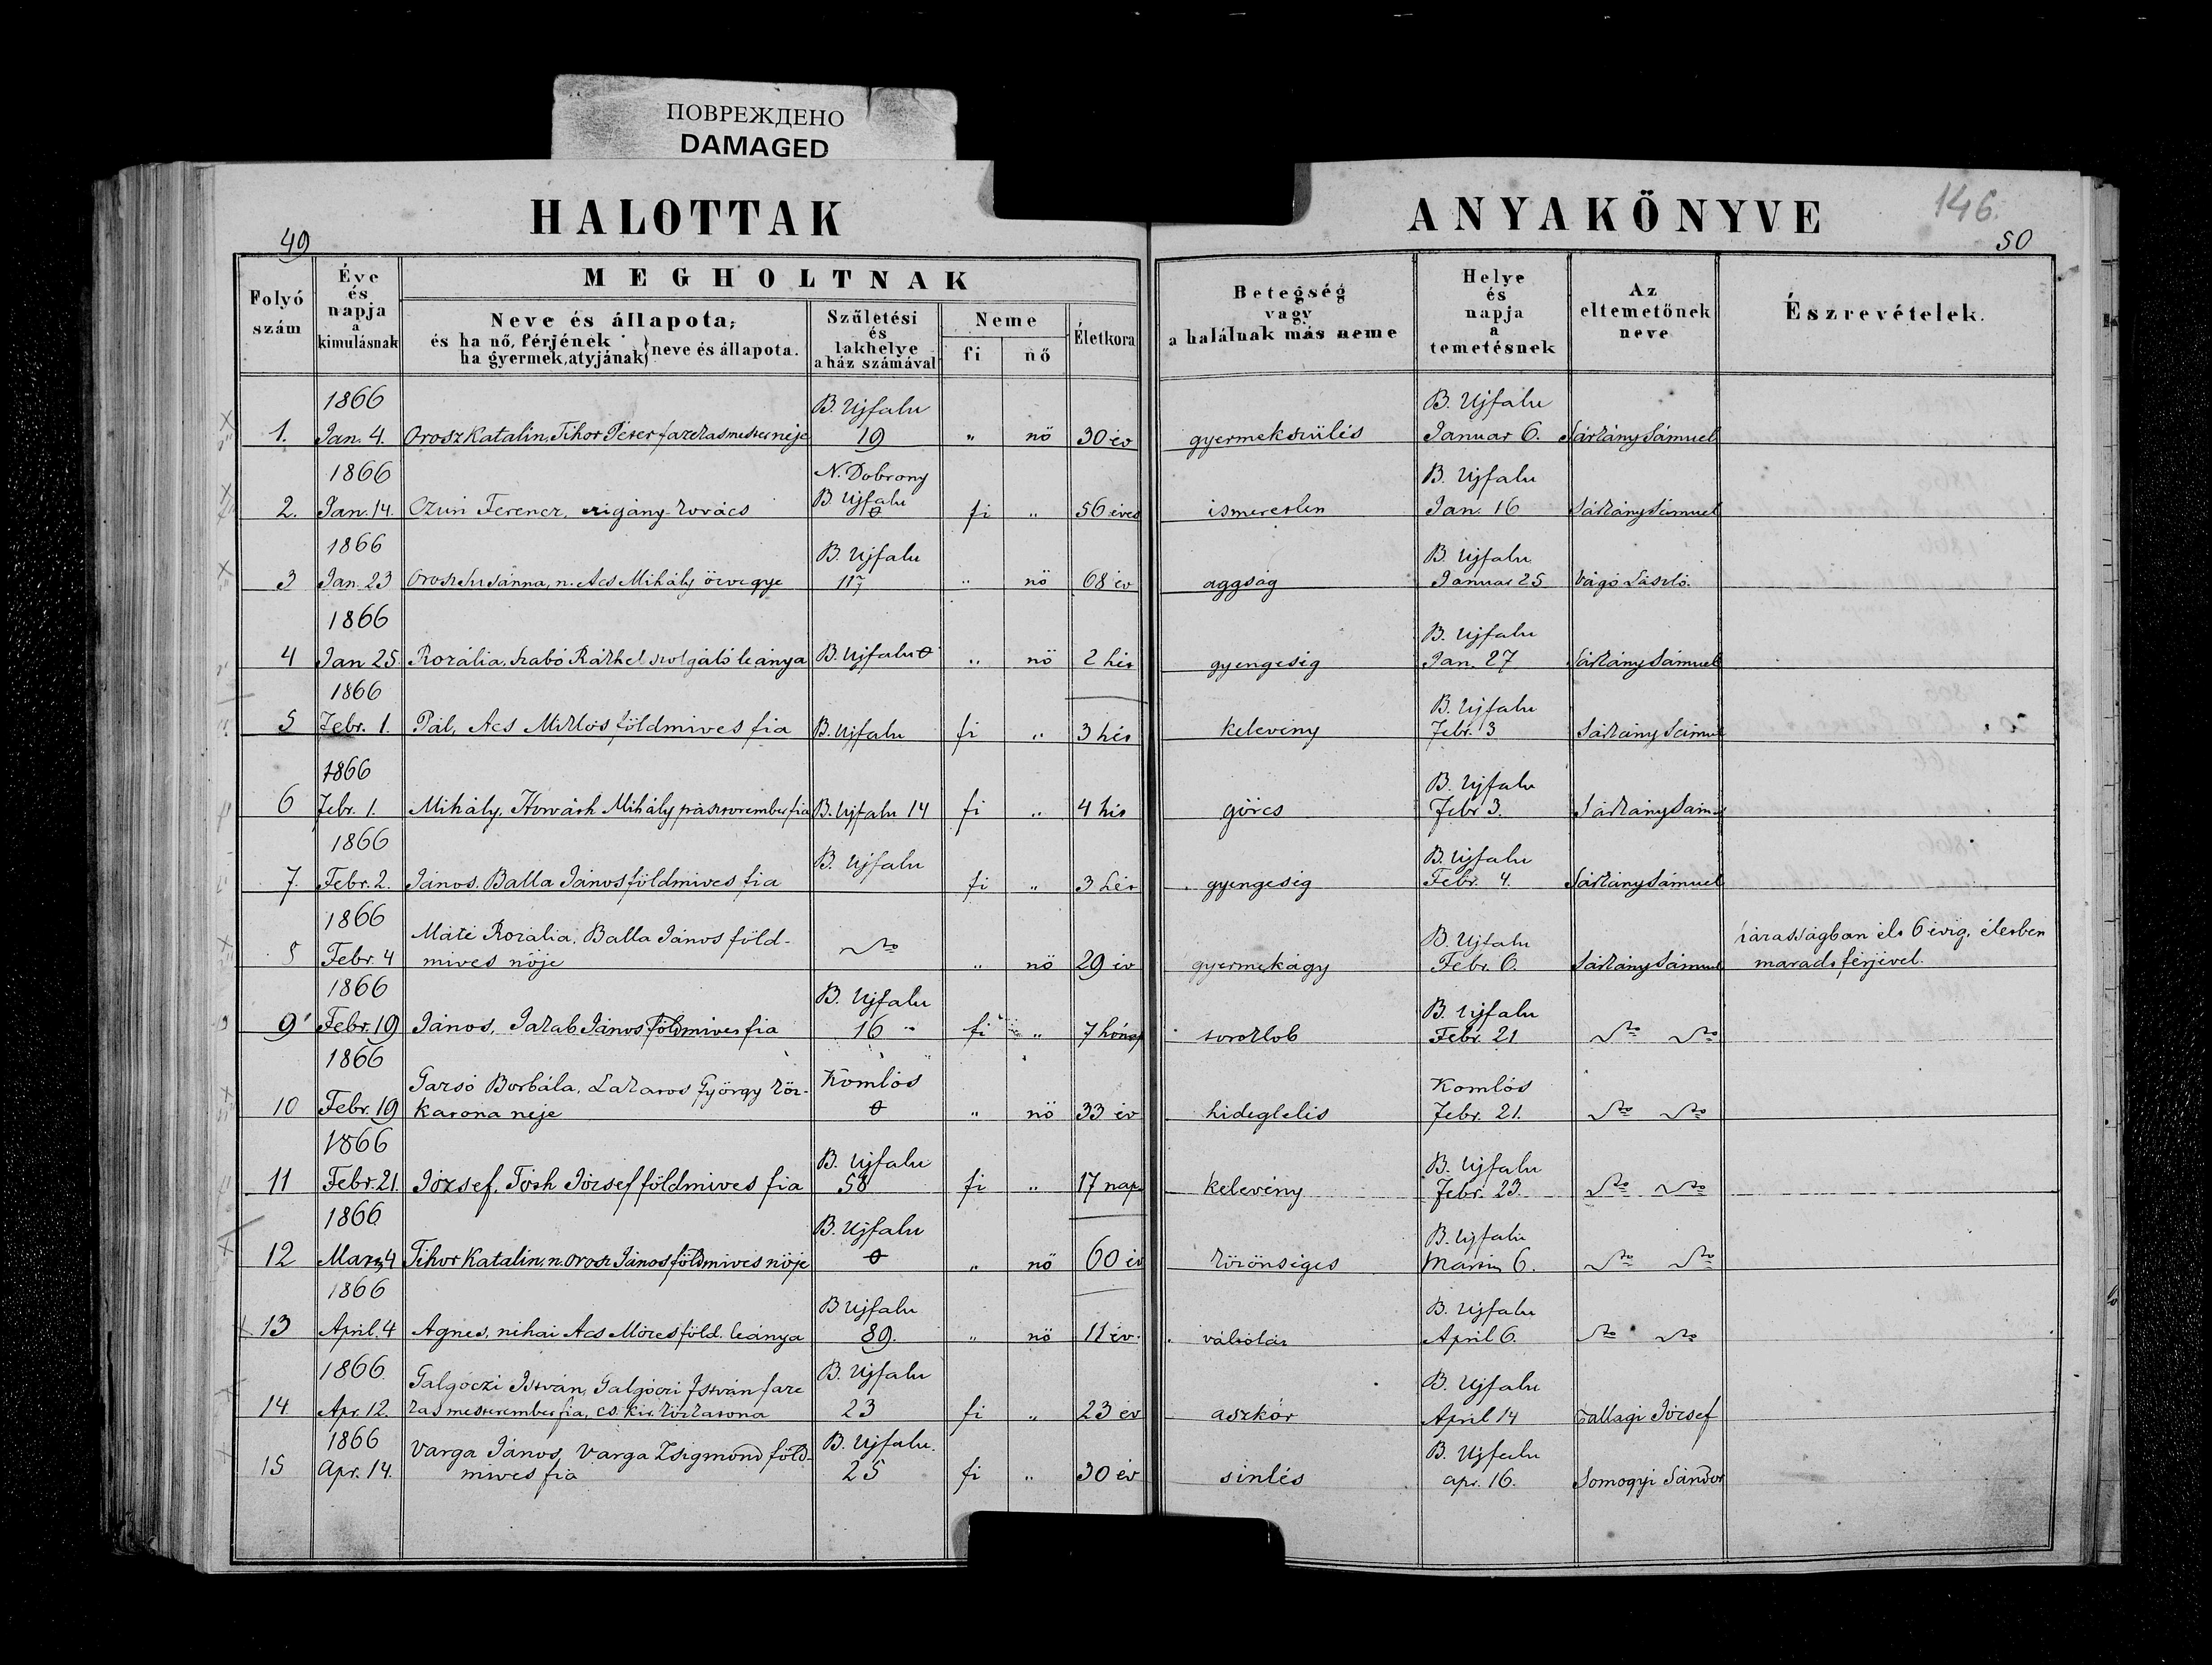 ПОВРЕЖДЕНО
DAMAGED
HALOTTAK
ANYAKÖNYVE
146.
49
50
Folyó szám
Éve és napja a kimulásnak
MEGHOLTNAK
Neve és állapota,
és ha nő, férjének
ha gyermek, atyjának} neve és állapota.
Születési és lakhelye a ház számával
Neme
fi
nő
Életkora
Betegség vagy a halálnak más neme
Helye és napja a temetésnek
Az eltemetőnek neve
Észrevételek.
1866 B. Ujfalu B. Ujfalu
1. Jan. 4. Orosz Katalin, Tihor Péter fazekasmester neje 19 " nő 30 év gyermekszülés Januar 6. Sárkány Sámuel
1866 N. Dobrony B. Ujfalu
2. Jan. 14. Czine Ferencz, czigány-kovács B Ujfalu 0 fi " 56 éves ismeretlen Jan. 16 Sárkány Sámuel
1866 B. Ujfalu B. Ujfalu
3 Jan. 23 Orosz Susánna, n. Acs Mihály özvegye 117 " nő 68 év aggság Januar 25 Vágó László.
1866 B. Ujfalu
4 Jan 25. Rozália, Szabó Ráhel szolgáló leánya B. Ujfalu 0 " nő 2 hét gyengeség Jan. 27 Sárkány Sámuel
1866 B. Ujfalu
5 Febr. 1. Pál, Acs Miklós földmives fia B. Ujfalu fi " 3 hét kelevény Febr. 3 Sárkány Sámuel
1866 B. Ujfalu
6 Febr. 1. Mihály, Horváth Mihály pásztorember fia B. Ujfalu 14 fi " 4 hét görcs Febr 3. Sárkány Sám
1866 B. Ujfalu B. Ujfalu
7. Febr. 2. János, Balla János földmives fia fi " 3 hét gyengeség Febr. 4. Sárkány Sámuel
1866 Máté Rozália, Balla János föld- B. Ujfalu házasságban élt 6 évig, életben
Febr. 4 mives nője " nő 29 év gyermekágy Febr. 6. Sárkány Sámuel maradt férjével.
1866 B. Ujfalu B. Ujfalu
9 Febr. 19 János, Jakab János földmives fia 16 fi " 7 hónap toroklob Febr. 21
1866 Garsó Borbála, Lakatos György köz- Komlós Komlós
10 Febr. 19 katona neje 0 " nő 33 év hideglelés Febr. 21.
1866 B. Ujfalu B. Ujfalu
11 Febr. 21. József, Tóth József földmives fia 58 fi " 17 nap kelevény Febr. 23.
1866 B. Ujfalu B. Ujfalu
12 Marz 4 Tihor Katalin, n. Orosz János földmives nője 0 " nő 60 év közönséges 6.
1866 B Ujfalu B. Ujfalu
13 April. 4 Agnes, néhai Acs Mózes föld. leánya 89. " nő 11 év. váltóláz April 6.
1866. Galgóczi István, Galgóczi István faze B. Ujfalu B. Ujfalu
14 Apr. 12. kas mesterember fia, cs. kir. közkatona 23 fi " 23 év aszkór April 14 Ballagi József
1866 Varga János, Varga Zsigmond föld- B. Ujfalu. B. Ujfalu
15 Apr. 14. mives fia 25 fi " 30 év sinlés apr. 16. Somogyi Sándor